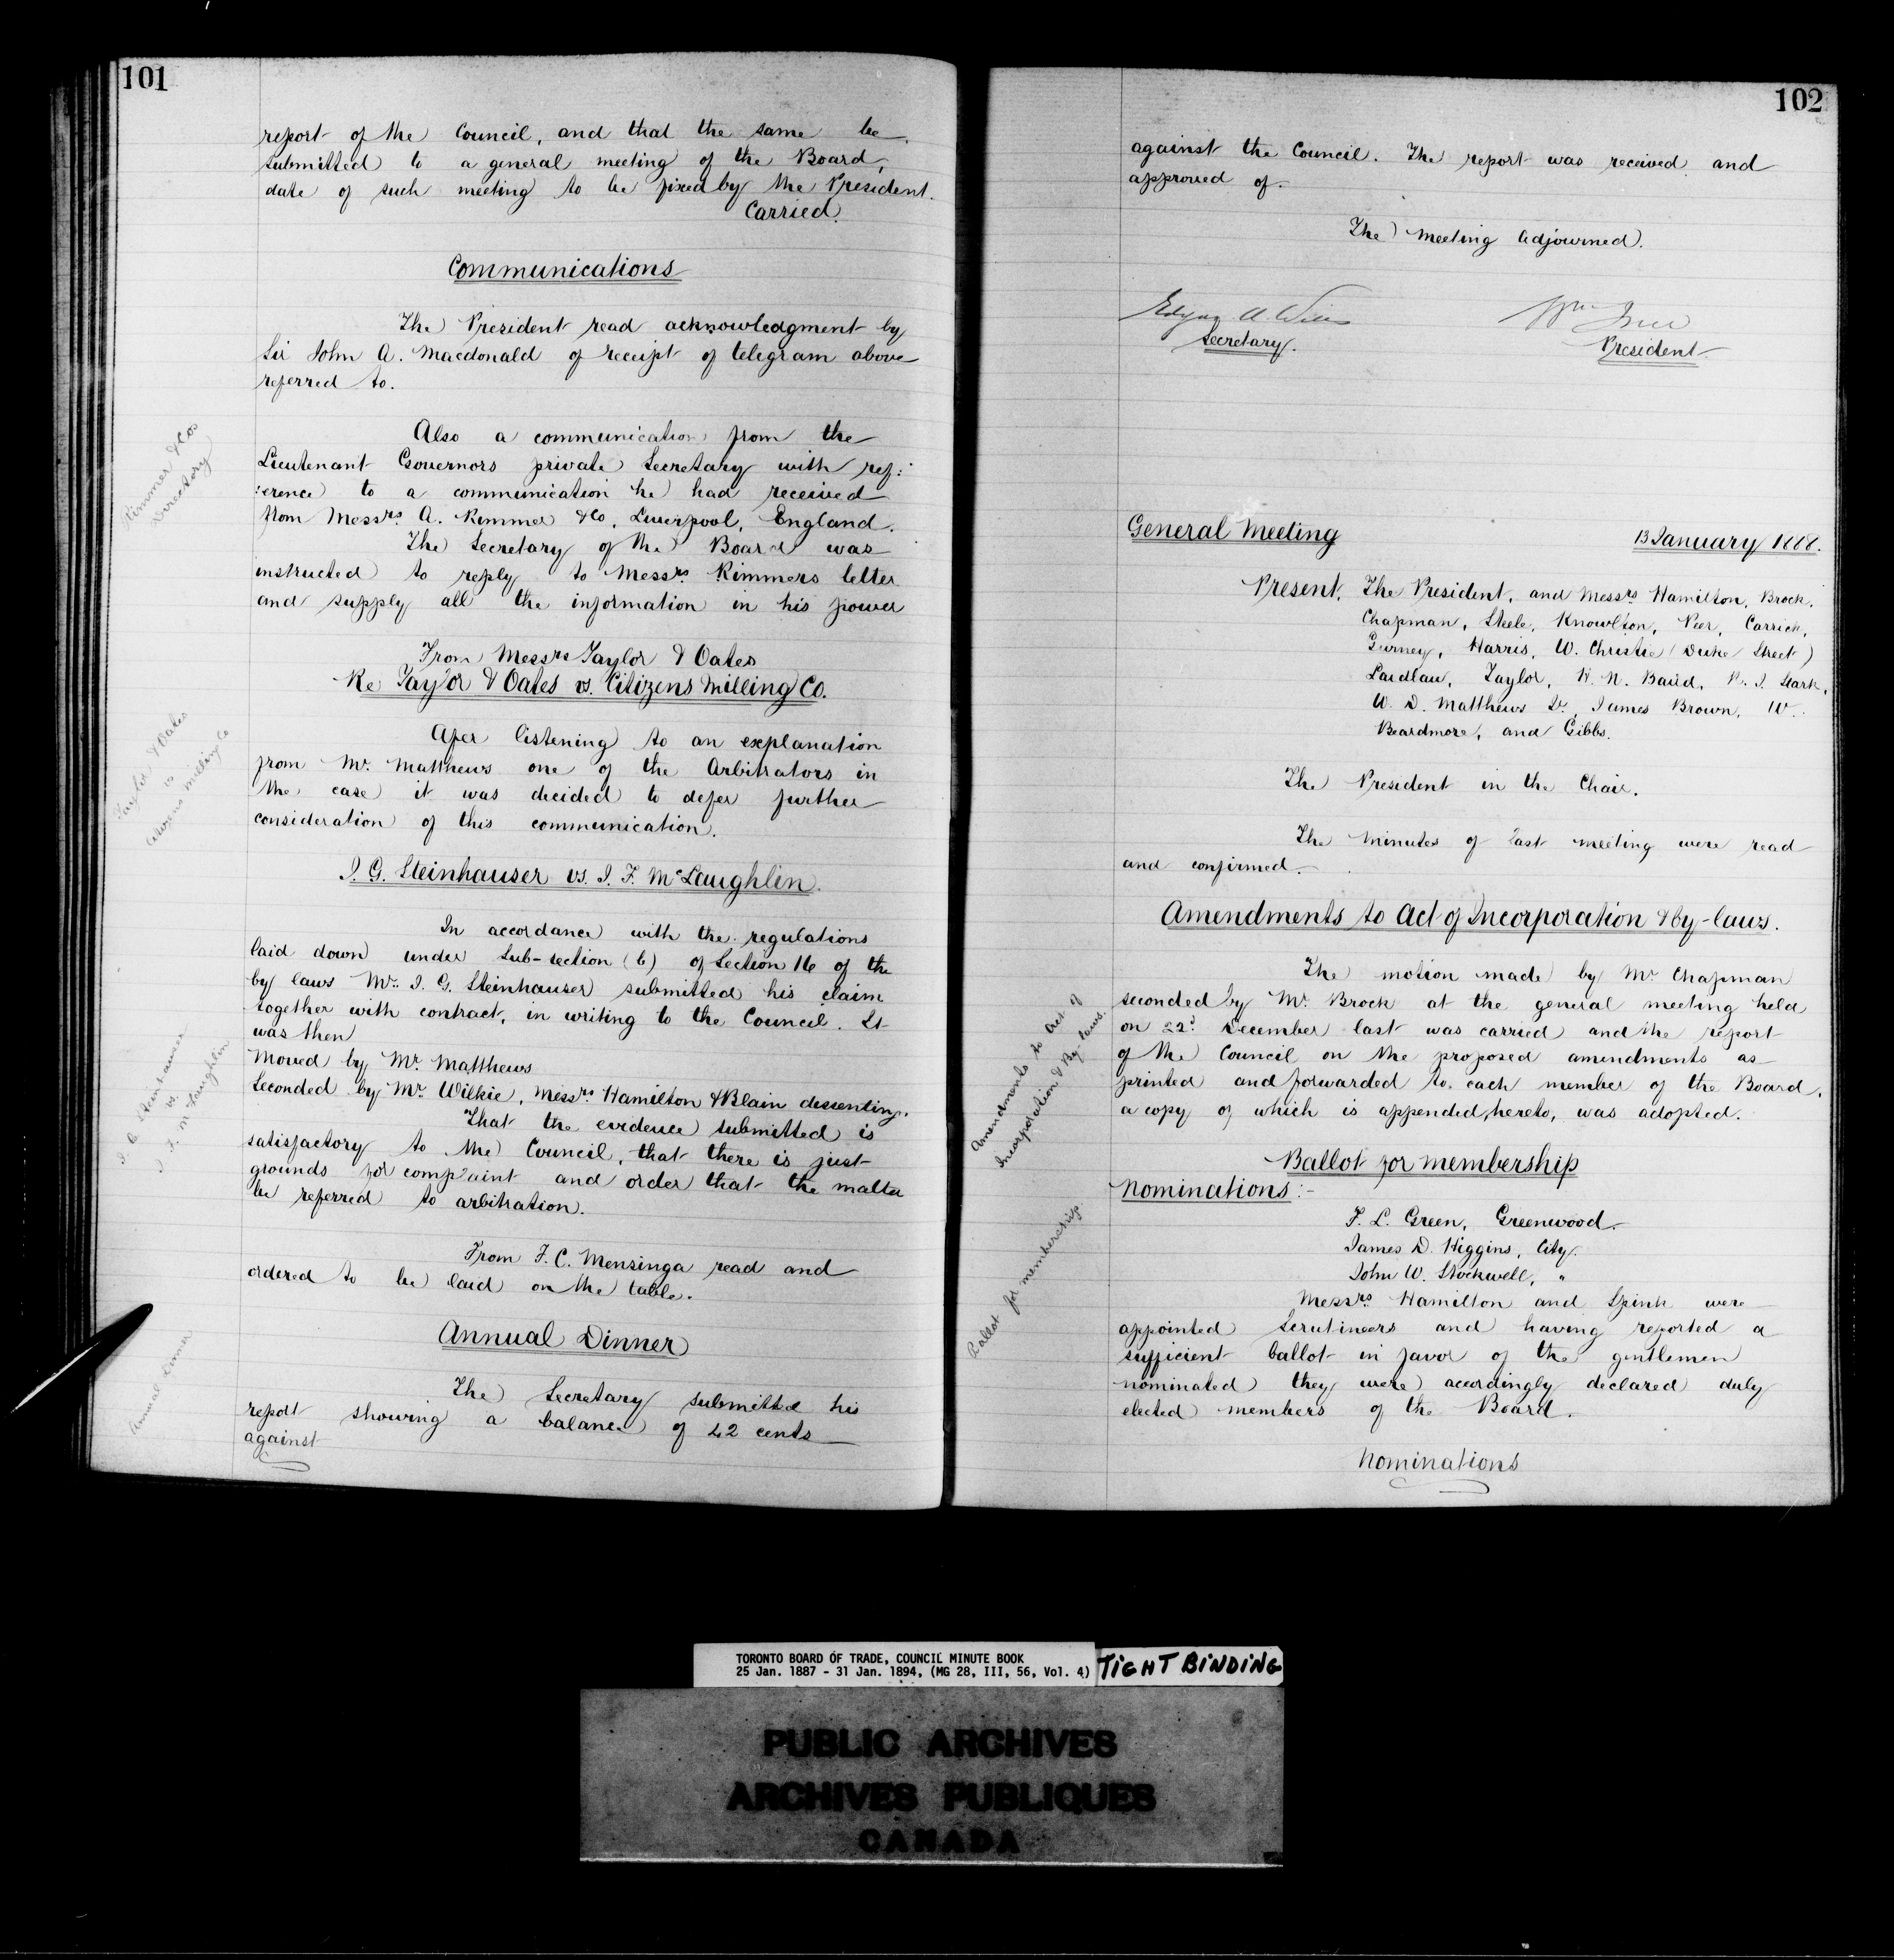 101
report of the Council, and that the same be
submitted to a general meeting of the Board,
date of such meeting to be fixed by the President.
Carried.
Communications
The President read acknowledgment by
Sir John A. Macdonald of receipt of telegram above
referred to.
Rimmer & Co
Directory
Also a communication from the
Lieutenant Governors private Secretary with ref:
:erence to a communication he had received
from Messrs. A. Rimmer & Co, Liverpool, England.
The Secretary of the Board was
instructed to reply to Messrs Rimmers letter
and supply all the information in his power
From Messrs Taylor & Oates
Re Taylor & Oates vs. Citizens Milling Co.
Taylor & Oates
vs
Citizens Milling Co
After listening to an explanation
from Mr. Matthews one of the Arbitrators in
the case it was decided to defer further
consideration of this communication.
I. G. Steinhauser vs. I. F. McLaughlin.
In accordance with the regulations
laid down under Sub-section (6) of Section 16 of the
by laws Mr. I. G. Steinhauser submitted his claim
together with contract, in writing to the Council. It
was then
I. G. Steinhauser
vs.
I. F. McLaughlin
Moved by Mr. Matthews
Seconded by Mr Wilkie, Messrs Hamilton & Blain dissenting.
That the evidence submitted is
satisfactory to the Council, that there is just
grounds for complaint and order that the matter
be referred to arbitration.
From F. C. Mensinga read and
ordered to be laid on the table.
Annual Dinner
Annual Dinner
The Secretary submitted his
report showing a balance of 42 cents
against
102
against the Council. The report was received and
approved of.
The meeting adjourned.
Edgar A. Wills
Secretary.
Wm Ince
President
General Meeting 13 January 1888.
Present. The President, and Messrs Hamilton, Brock,
Chapman, Steele, Knowlton, Peer, Carrick,
Gurney, Harris, W. Christie (Duke Street)
Laidlaw, Taylor, H. N. Baird, Stark,
W. D. Matthews Sr, James Brown, W.
Beardmore, and Gibbs.
The President in the Chair.
The minutes of last meeting were read
and confirmed.
Amendments to Act of Incorporation & By-laws.
Amendments to Act of
Incorporation & By-laws.
The motion made by Mr Chapman
seconded by Mr. Brock at the general meeting held
on 22d December last was carried and the report
of the Council on the proposed amendments as
printed and forwarded to each member of the Board,
a copy of which is appended hereto, was adopted.
Ballot for membership
Ballot for membership
Nominations:-
F. L. Green, Greenwood.
James D. Higgins, City.
John W. Stockwell, "
Messrs. Hamilton and Spink were
appointed Scrutineers and having reported a
sufficient ballot in favor of the gentlemen
nominated they were accordingly declared duly
elected members of the Board.
Nominations
TORONTO BOARD OF TRADE, COUNCIL MINUTE BOOK
25 Jan. 1887 - 31 Jan. 1894, (MG 28, III, 56, Vol. 4)
TIGHT BINDING
PUBLIC ARCHIVES
ARCHIVES PUBLIQUES
CANADA